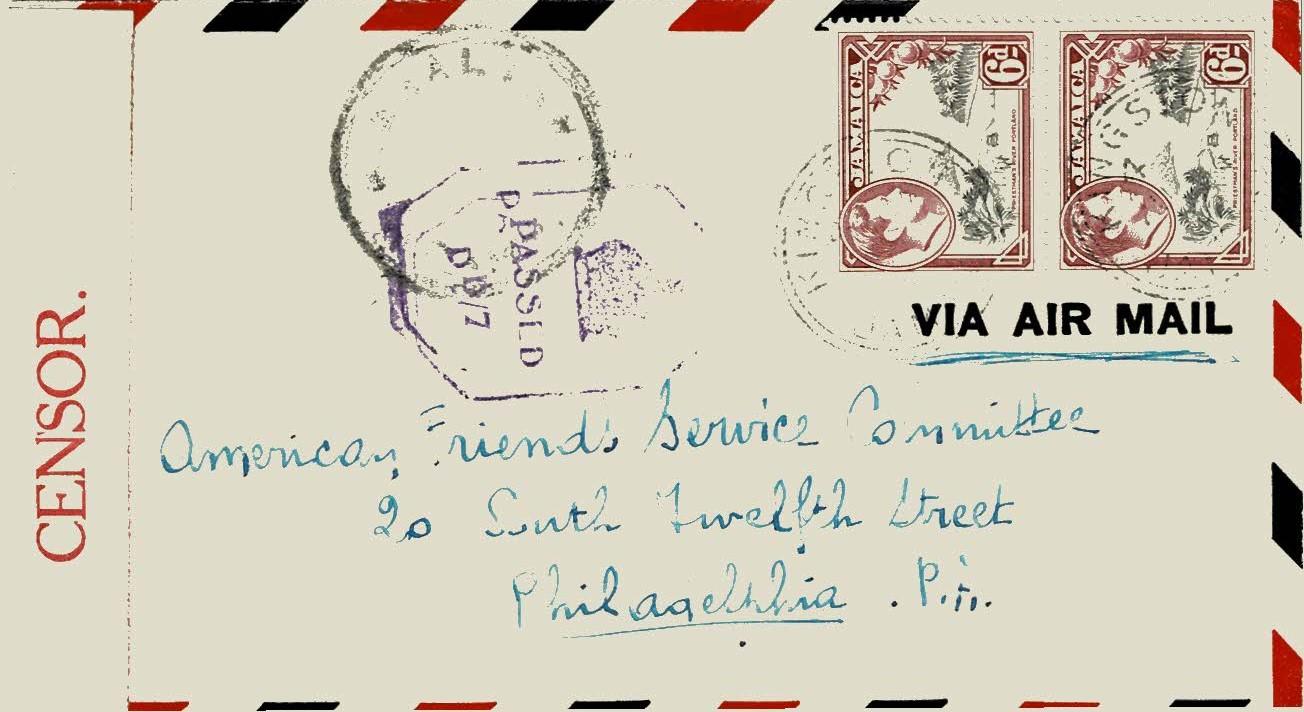 JAMAICA 6d
PRIESTMAN'S RIVER PORTLAND
JAMAICA 6d
PRIESTMAN'S RIVER PORTLAND
KINGSTON
VIA AIR MAIL
PASSED
DD/7
CENSOR.
American Friends Service Committee
20 South Twelfth Street
Philadelphia . Pa.